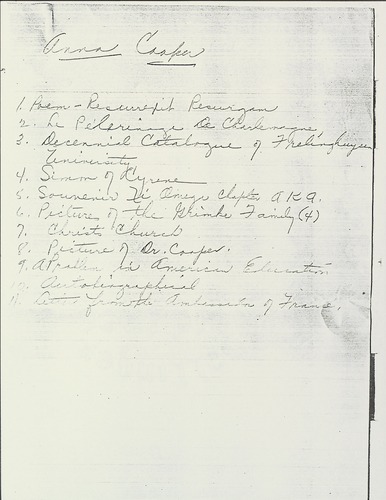 Anna Cooper
1. Poem - Resurrexit Resurgam
2. Le Pélerinage De Charlemagne
3. Decennial Catalogue of Frelinghuysen
University
4. Simon of Cyrene
5. Souvenir Xi Omega Chapter A K A.
6. Picture of the Grimke Family (4)
7. Christ Church
8. Picture of Dr. Cooper.
9. A Problem in American Education
10. Autobiographical
11. from the Ambassador of France.